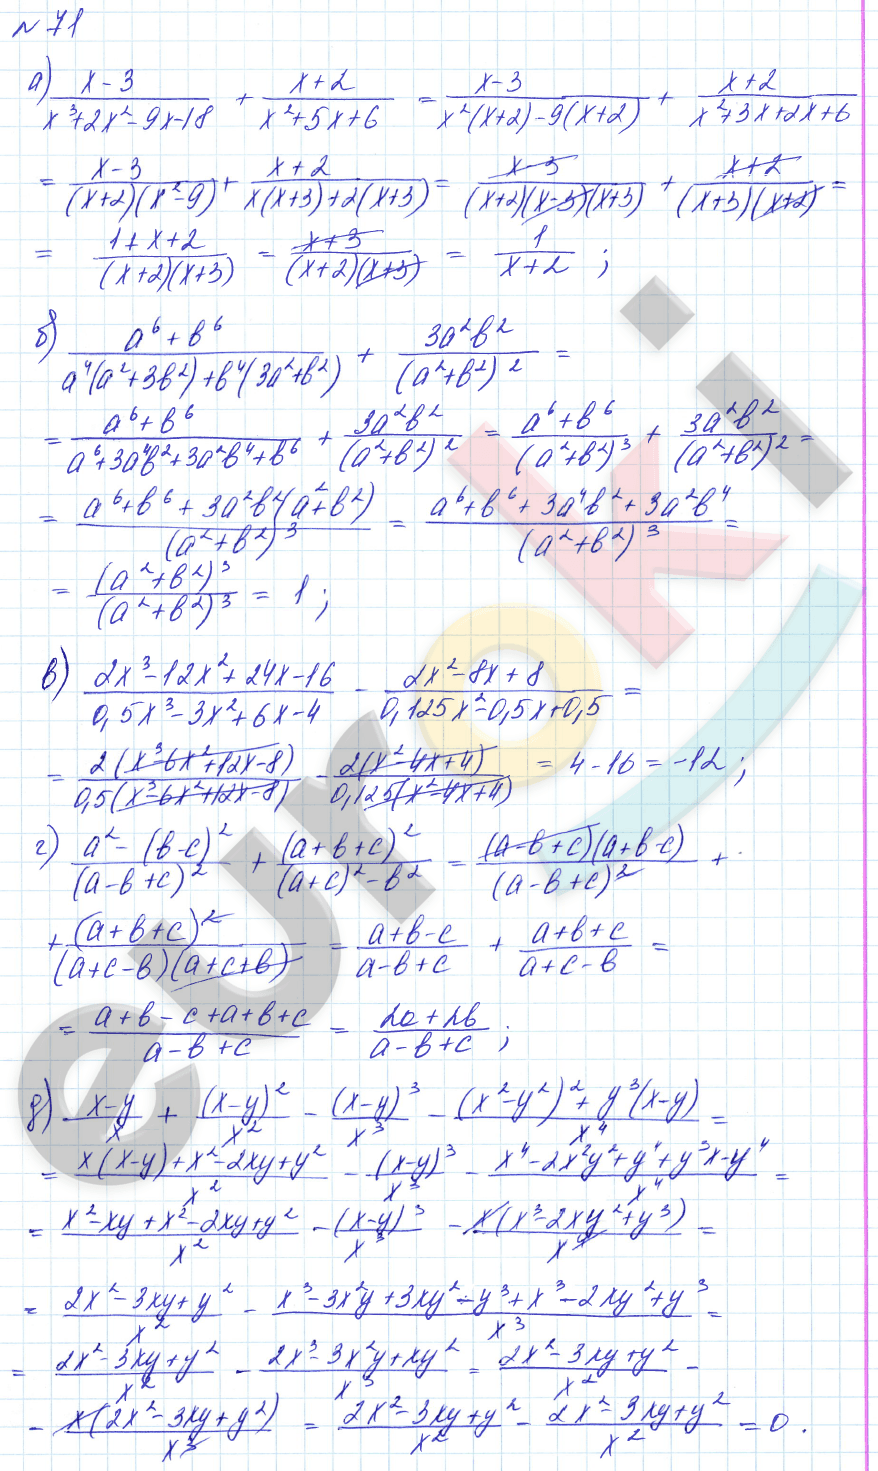 № 71
а) (x-3)/(x³+2x²-9x-18) + (x+2)/(x²+5x+6) = (x-3)/(x²(x+2)-9(x+2)) + (x+2)/(x²+3x+2x+6)
= (x-3)/((x+2)(x²-9)) + (x+2)/(x(x+3)+2(x+3)) = (x-3)/((x+2)(x-3)(x+3)) + (x+2)/((x+3)(x+2)) =
= (1+x+2)/((x+2)(x+3)) = (x+3)/((x+2)(x+3)) = 1/(x+2) ;
б) (a⁶+b⁶)/(a⁴(a²+3b²)+b⁴(3a²+b²)) + 3a²b²/(a²+b²)² =
= (a⁶+b⁶)/(a⁶+3a⁴b²+3a²b⁴+b⁶) + 3a²b²/(a²+b²)² = (a⁶+b⁶)/(a²+b²)³ + 3a²b²/(a²+b²)² =
= (a⁶+b⁶+3a²b²(a²+b²))/(a²+b²)³ = (a⁶+b⁶+3a⁴b²+3a²b⁴)/(a²+b²)³ =
= (a²+b²)³/(a²+b²)³ = 1 ;
в) (2x³-12x²+24x-16)/(0,5x³-3x²+6x-4) - (2x²-8x+8)/(0,125x²-0,5x+0,5) =
= 2(x³-6x²+12x-8)/(0,5(x³-6x²+12x-8)) - 2(x²-4x+4)/(0,125(x²-4x+4)) = 4-16 = -12 ;
г) (a²-(b-c)²)/(a-b+c)² + (a+b+c)²/((a+c)²-b²) = (a-b+c)(a+b-c)/(a-b+c)² +
+ (a+b+c)²/((a+c-b)(a+c+b)) = (a+b-c)/(a-b+c) + (a+b+c)/(a+c-b) =
= (a+b-c+a+b+c)/(a-b+c) = (2a+2b)/(a-b+c) ;
д) (x-y)/x + (x-y)²/x² - (x-y)³/x³ - ((x²-y²)²+y³(x-y))/x⁴ =
= (x(x-y)+x²-2xy+y²)/x² - (x-y)³/x³ - (x⁴-2x²y²+y⁴+y³x-y⁴)/x⁴ =
= (x²-xy+x²-2xy+y²)/x² - (x-y)³/x³ - x(x³-2xy²+y³)/x⁴ =
= (2x²-3xy+y²)/x² - (x³-3x²y+3xy²-y³+x³-2xy²+y³)/x³ =
= (2x²-3xy+y²)/x² - (2x³-3x²y+xy²)/x³ = (2x²-3xy+y²)/x² -
- x(2x²-3xy+y²)/x³ = (2x²-3xy+y²)/x² - (2x²-3xy+y²)/x² = 0 .
euroki